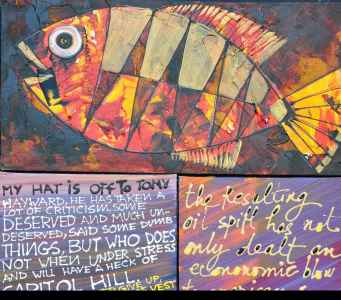 MY HAT iS OFF TO TONY
HAYWARD. HE HAS TAKEN A
LOT OF CRITICISM. SOME
DESERVED AND MUCH UN-
DESERVED, SAID SOME DUMB
THINGS, BUT WHO DOES
NOT WHEN UNDER STRESS
AND WILL HAVE A HECK OF
CAPITOL HILL
the resulting
oil spill has not
only dealt an
economic blow